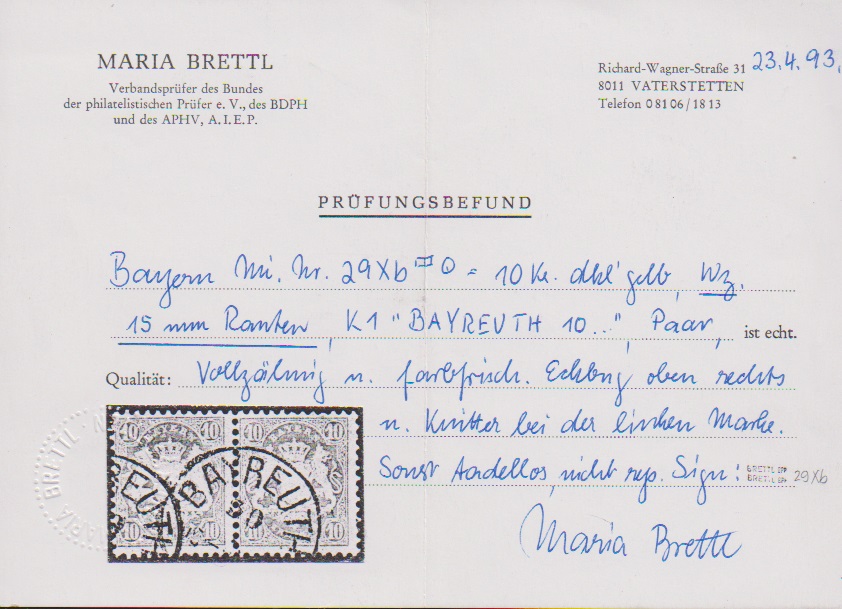 MARIA BRETTL
Verbandsprüfer des Bundes
der philatelistischen Prüfer e. V., des BDPH
und des APHV, A.I.E.P.
Richard-Wagner-Straße 31
23.4.93.
8011 VATERSTETTEN
Telefon 08106/1813
PRÜFUNGSBEFUND
Bayern Mi. Nr. 29Xb = 10 Kr. dkl'gelb, Wz.
15 mm Rauten, K1 "BAYREUTH 10...", Paar, ist echt.
Qualität: Vollzähnig u. farbfrisch. Eckbug oben rechts
u. Knitter bei der linken Marke.
Sonst tadellos, nicht rep. Sign: BRETTL BPP 29Xb
BRETTL BPP
Maria Brettl
MARIA BRETTL
10 10 10 10
BAYREUTH
10 10